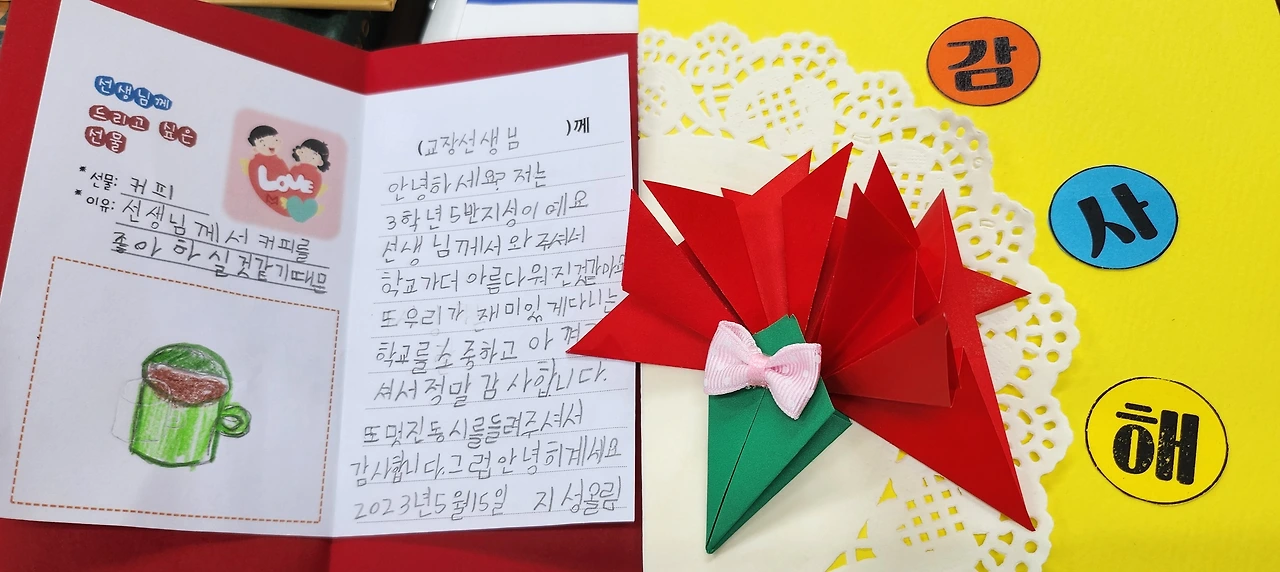 선생님께
드리고 싶은
선물
* 선물: 커피
* 이유: 선생님께서 커피를
좋아하실것같기때문
LOVE
(교장선생님 )께
안녕하세요? 저는
3학년5반지성이에요
선생님께서와주셔서
학교가더아름다워진것같아요
또우리가 재미있게다니는
학교를소중하고 아껴
셔서정말감사합니다.
또멋진동시를들려주셔서
감사합니다.그럼안녕히계세요
2023년5월15일 지성올림
감
사
해